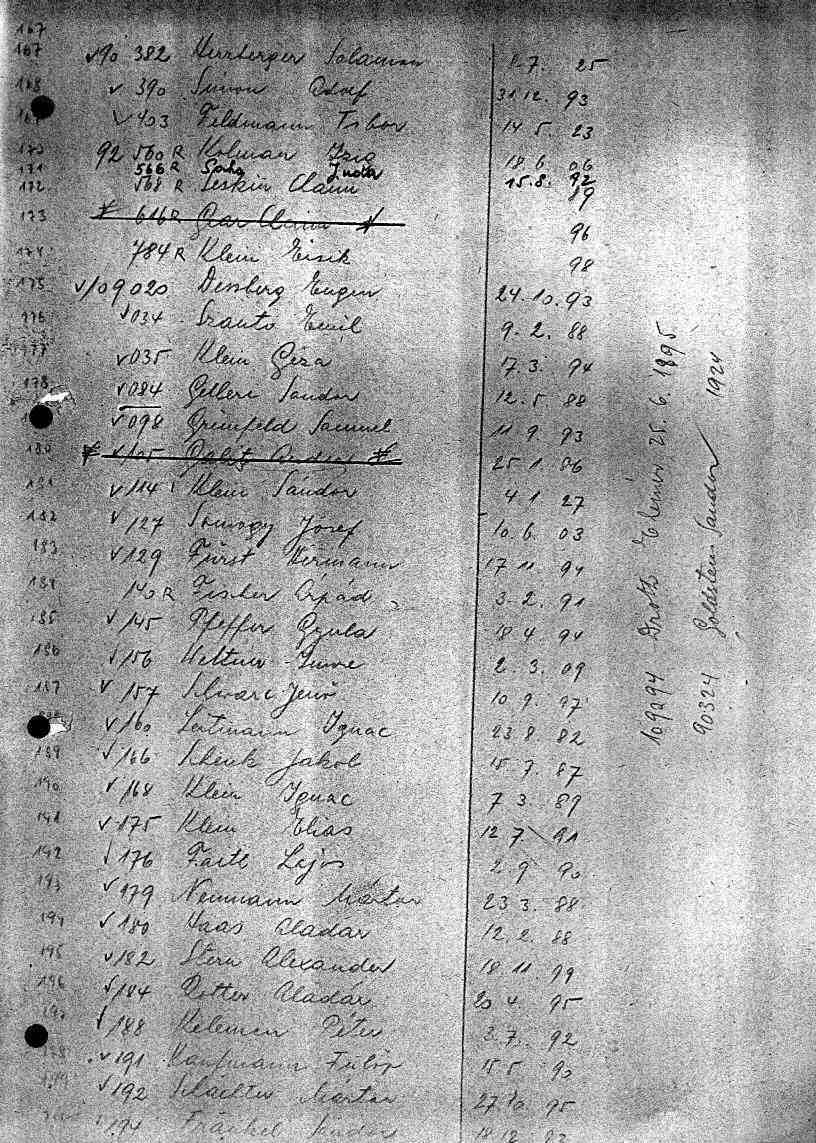 167
167 √90 382 Herzberger Salamon 8.7. 25
168 √ 390 Simon Adolf 31 12. 93
√ 403 Feldmann Tibor 14 5. 23
170 92 560 R Kolman 18 6 06
171 566 R 15.8. 92
172. 568 R Leskin Chaim 89
173 616 R Chaim 96
174 784 R Klein Eisik 98
175 √109020 Eugen 24.10.93
√034 Szanto Emil 9. 2. 88
177 √035 Klein Géza 17.3. 94
178 √084 Gelleri Sandor 12.5 88
√098 Grünfeld Samuel 11 9. 93
180 25 1. 86
181 √114 Klein Sándor 4 1 27
182 √127 Somogy József 10.6. 03
183 √129 Fürst Hermann 17 11. 94
184 140 R Fischer Árpád 3. 2. 91
185 √145 Pfeffer Gyula 18 4 94
186 √156 Imre 2. 3. 09
187 √157 Schwarc Jenö 10 9. 97
√160 Ignac 23 8. 82
189 √166 Schenk Jakob 15 7. 87
190 √168 Klein Ignac 7 3. 89
191 √175 Klein Elias 12 7. 91
192 √176 Lajos 2 9 90
193 √179 Neumann Márton 23 3. 88
194 √180 Haas Aladár 12. 2. 88
195 √182 Stern Alexander 18 11. 99
196 √184 Rotter Aladár 20 4. 95
197 √188 Kelemen Péter 3.7. 92
√191 Kaufmann Fülöp 15 5 90
√192 Schachter Márton 27 10 95
194 Fränkel Sandor 18 12
109294 Elemér 25. 6. 1895
90324 Goldstein Sandor 1924